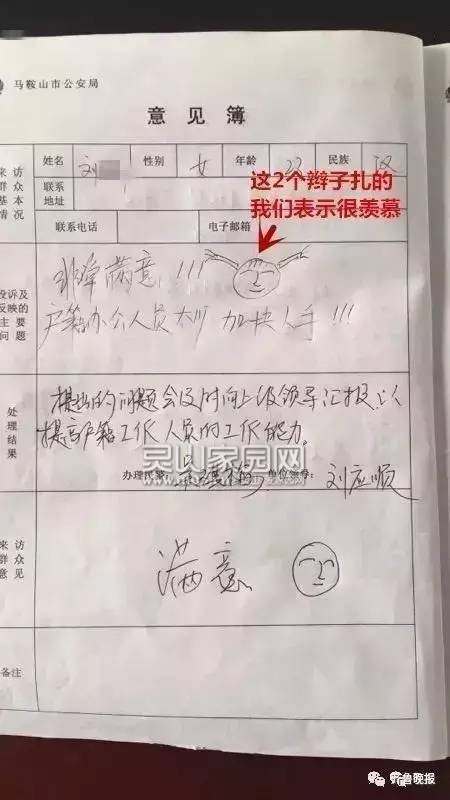 马鞍山市公安局
意见簿
来访群众基本情况
姓名 刘 性别 女 年龄 22 民族 汉
联系地址
这2个辫子扎的
我们表示很羡慕
联系电话 电子邮箱
投诉及反映的主要问题
非常满意!!!
户籍办公人员太少 加快人手!!!
处理结果
提出的问题会及时向上级领导汇报,以
提高户籍工作人员的工作能力。
灵山家园网
办理民警: 单位领导: 刘应顺
来访群众意见
满意
备注
齐鲁晚报